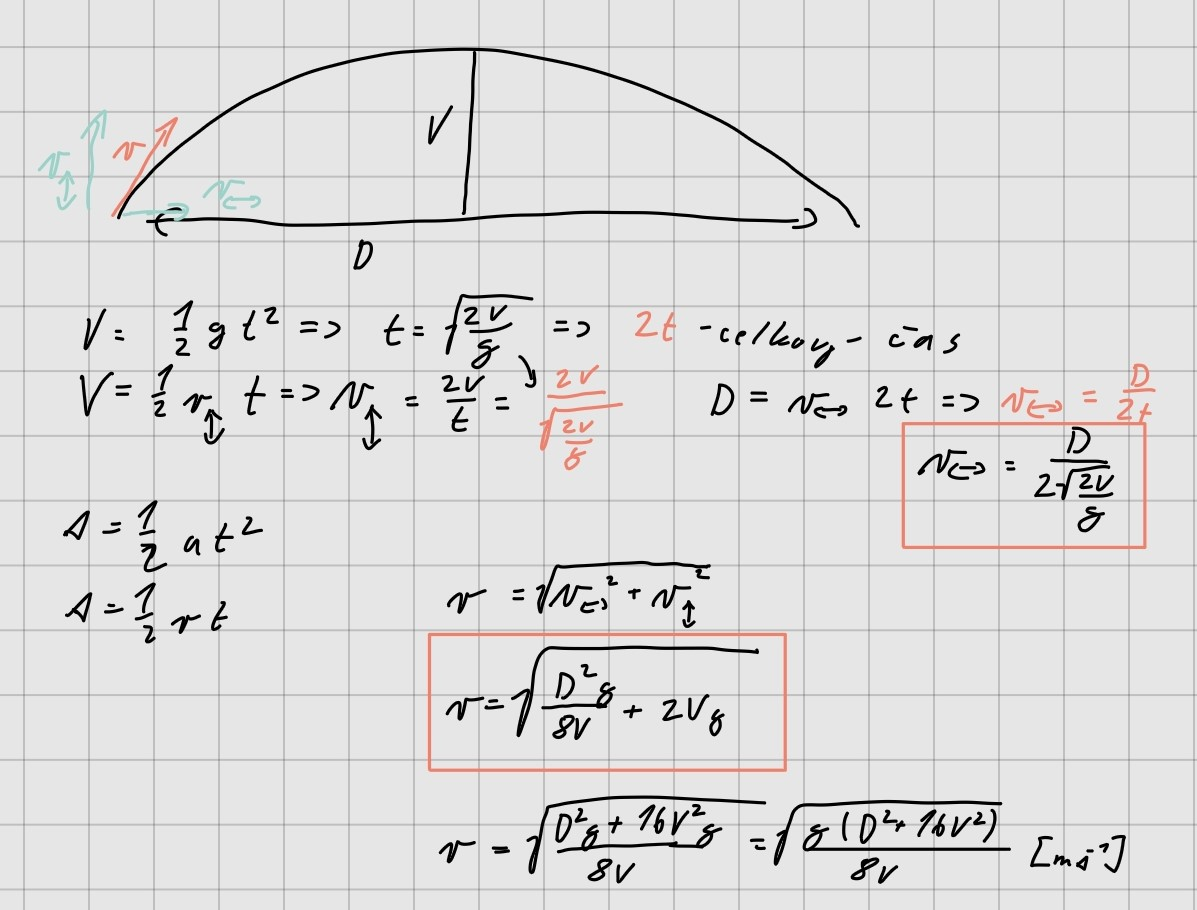 V
v↕ v v↔
D
V = 1/2 g t² => t = √(2V/g) => 2t - celkový - čas
V = 1/2 v↕ t => v↕ = 2V/t = 2V/√(2V/g) D = v↔ 2t => v↔ = D/2t
v↔ = D/(2√(2V/g))
s = 1/2 a t²
s = 1/2 v t
v = √(v↔² + v↕²)
v = √(D²g/8V + 2Vg)
v = √((D²g + 16V²g)/8V) = √(g(D² + 16V²)/8V) [ms⁻¹]